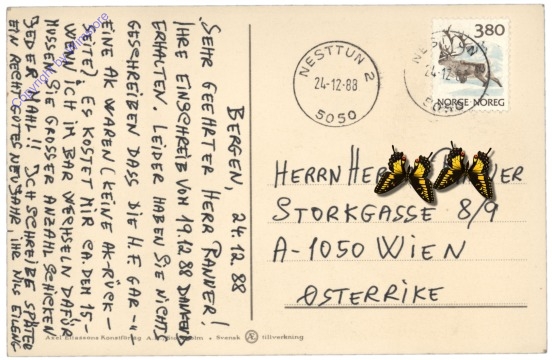 BERGEN, 24.12 88
"SEHR GEEHRTER HERR RANNER!
IHRE EINSCHREIB VOM 19.12 88 DANKEND
ERHALTEN. LEIDER HABEN SIE NICHTS
GESCHREIBEN DASS DIE H.F. GAR-"-
EINE AK WAREN (KEINE AK-RÜCK-
SEITE) ES KOSTET MIR CA. DEM 15-
WENN ICH IM BAR WECHSELN DAFÜR
MUSSEN SIE GROSSER ANZAHL SCHICKEN
JEDER MAHL!! ICH SCHREIBE SPÄTER
EIN RECHT GUTES NEUJAHR, IHR NILS
NESTTUN 2
24-12-88
5050
NESTTUN
24-12-88
380
NORGE NOREG
HERRN
STORKGASSE 8/9
A-1050 WIEN
ØSTERRIKE
Axel Eliassons Konstförlag • Svensk Æ tillverkning